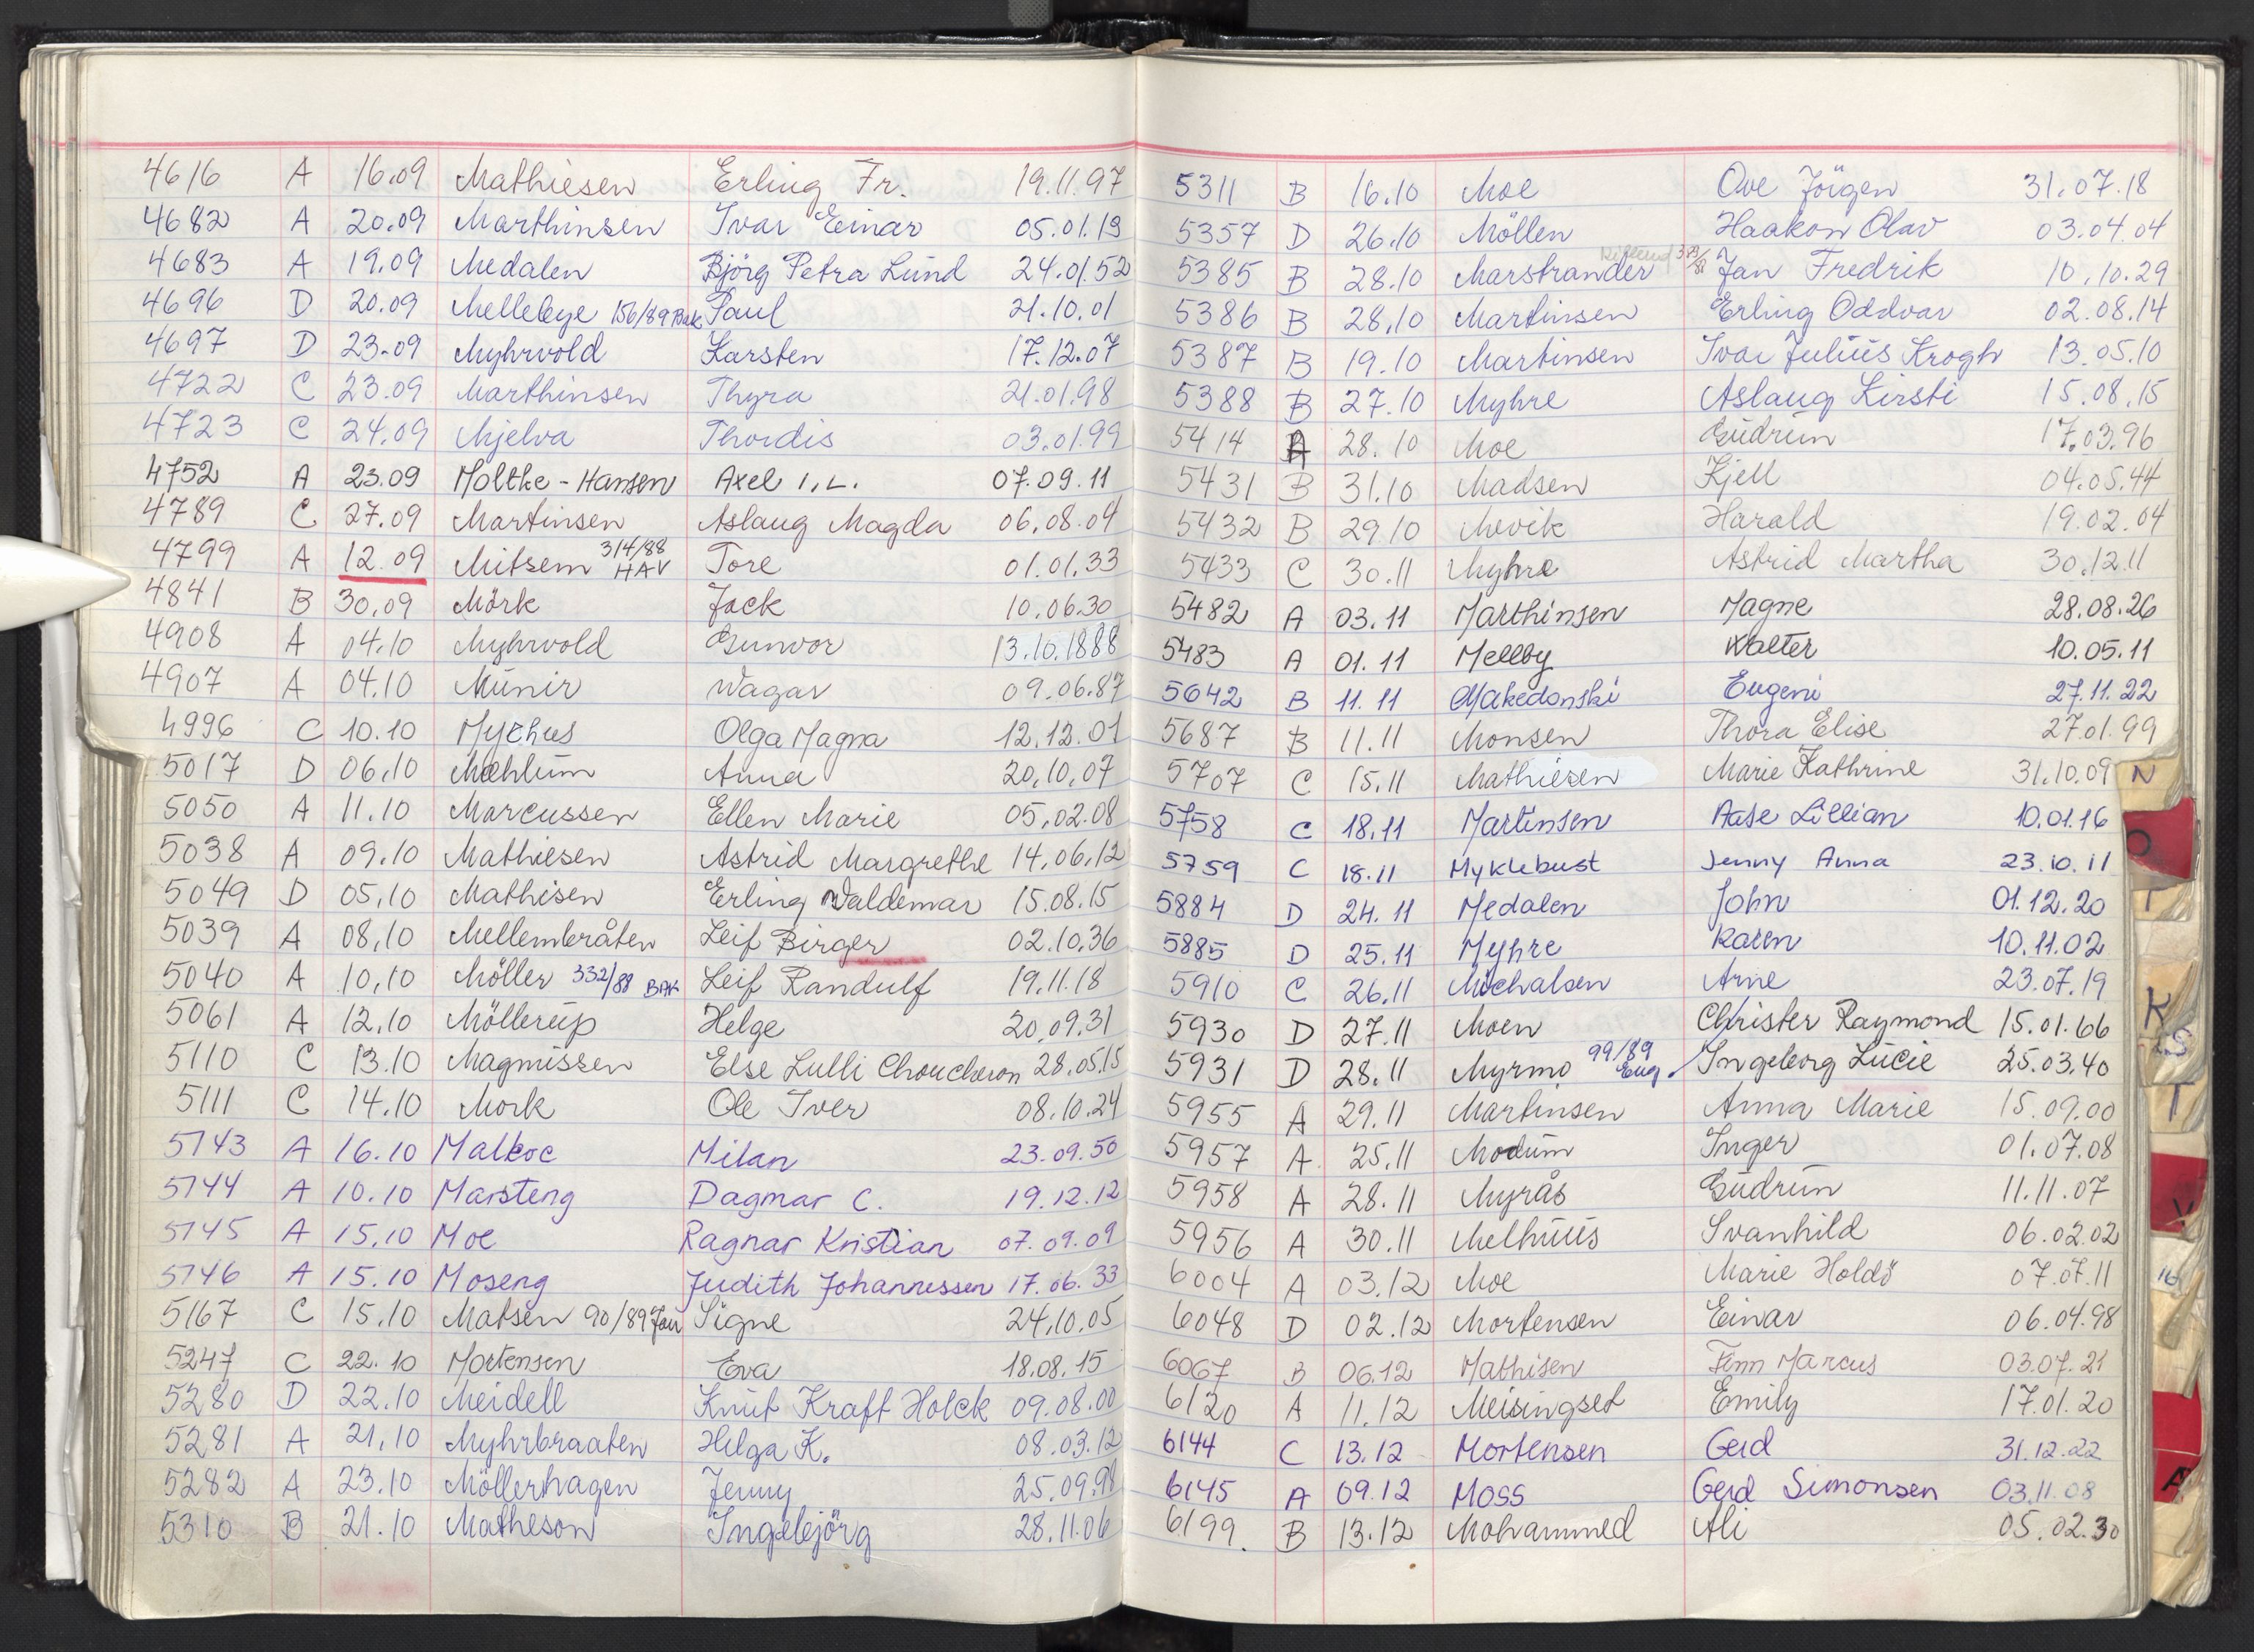 4616 A 16.09 Mathiesen Erling Fr. 19.11.97
4682 A 20.09 Marthinsen Ivar Einar 05.01.19
4683 A 19.09 Medalen Björg Petra Lund 24.01.52
4696 D 20.09 Mellebye 156/89 Bak Paul 21.10.01
4697 D 23.09 Myhrvold Karsten 17.12.07
4722 C 23.09 Marthinsen Thyra 21.01.98
4723 C 24.09 Mjelva Thordis 03.01.99
4752 A 23.09 Moltke-Hansen Axel I.L. 07.09.11
4789 C 27.09 Martinsen Aslaug Magda 06.08.04
4799 A 12.09 Mitsem 314/88 HAV Tore 01.01.33
4841 B 30.09 Mörk Jack 10.06.30
4908 A 04.10 Myhrvold Gunvor 13.10.1888
4907 A 04.10 Munir Wagar 09.06.87
4996 C 10.10 Myrhus Olga Magna 12.12.01
5017 D 06.10 Mæhlum Anna 20.10.07
5050 A 11.10 Marcussen Ellen Marie 05.02.08
5038 A 09.10 Mathiesen Astrid Margrethe 14.06.12
5049 D 05.10 Mathisen Erling Waldemar 15.08.15
5039 A 08.10 Mellembråten Leif Birger 02.10.36
5040 A 10.10 Möller 332/88 BAK Leif Randulf 19.11.18
5061 A 12.10 Möllerup Helge 20.09.31
5110 C 13.10 Magnussen Else Lulli Choucheron 28.05.15
5111 C 14.10 Mork Ole Iver 08.10.24
5143 A 16.10 Malkoc Milan 23.09.50
5144 A 10.10 Marsteng Dagmar C. 19.12.12
5145 A 15.10 Moe Ragnar Kristian 07.09.09
5146 A 15.10 Moseng Judith Johannessen 17.06.33
5167 C 15.10 Matsen 90/89 Jan Signe 24.10.05
5247 C 22.10 Mortensen Eva 18.08.15
5280 D 22.10 Meidell Knut Kraft Holck 09.08.00
5281 A 21.10 Myhrbraaten Helga K. 08.03.12
5282 A 23.10 Möllerhagen Jenny 25.09.98
5310 B 21.10 Matheson Ingebjörg 28.11.06
5311 B 16.10 Moe Ove Jörgen 31.07.18
5357 D 26.10 Möllen Haakon Olav 03.04.04
5385 B 28.10 Marstrander Jan Fredrik 10.10.29
5386 B 28.10 Martinsen Erling Oddvar 02.08.14
5387 B 19.10 Martinsen Ivar Julius Krogh 13.05.10
5388 B 27.10 Myhre Aslaug Kirsti 15.08.15
5414 A 28.10 Moe Gudrun 17.03.96
5431 B 31.10 Madsen Kjell 04.05.44
5432 B 29.10 Mevik Harald 19.02.04
5433 C 30.11 Myhre Astrid Martha 30.12.11
5482 A 03.11 Marthinsen Magne 28.08.26
5483 A 01.11 Mellby Walter 10.05.11
5642 B 11.11 Makedonski Eugeni 27.11.22
5687 B 11.11 Monsen Thora Elise 27.01.99
5707 C 15.11 Mathiesen Marie Kathrine 31.10.09
5758 C 18.11 Martinsen Aase Lillian 10.01.16
5759 C 18.11 Myklebust Jenny Anna 23.10.11
5884 D 24.11 Medalen John 01.12.20
5885 D 25.11 Myhre Karen 10.11.02
5910 C 26.11 Michalsen Arne 23.07.19
5930 D 27.11 Moen Christer Raymond 15.01.66
5931 D 28.11 Myrmo 99/89 Eug. Ingeborg Lucie 25.03.40
5955 A 29.11 Martinsen Anna Marie 15.09.00
5957 A 25.11 Modum Inger 01.07.08
5958 A 28.11 Myrås Gudrun 11.11.07
5956 A 30.11 Melhuus Svanhild 06.02.02
6004 A 03.12 Moe Marie Holdö 07.07.11
6048 D 02.12 Mortensen Einar 06.04.98
6067 B 06.12 Mathisen Finn Marcus 03.07.21
6120 A 11.12 Meisingset Emily 17.01.20
6144 C 13.12 Mortensen Gerd 31.12.22
6145 A 09.12 Moss Gerd Simonsen 03.11.08
6199. B 13.12 Mohammed Ali 05.02.30
N
O
K
S
T
V